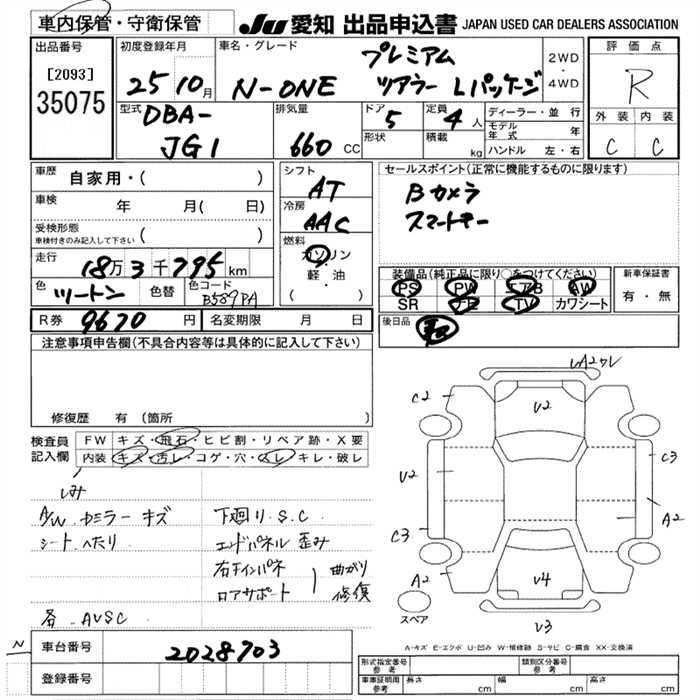 車内保管・守衛保管
JU 愛知 出品申込書 JAPAN USED CAR DEALERS ASSOCIATION
出品番号 [2093] 35075
初度登録年月 25 10月
車名・グレード N-ONE プレミアム ツアラー Lパッケージ
2WD・4WD
評価点 R
外装 内装
C C
型式 DBA-JG1
排気量 660 CC
ドア 5
定員 4人
形状
積載 kg
ディーラー・並行
モデル年式 年
ハンドル 左・右
車歴 自家用・( )
車検 年 月( 日)
受検形態 車検付きのみ記入して下さい ( )
走行 18万3千795km
色 ツートン 色替 色コード B589PA
シフト AT
冷房 AAC
燃料 ガソリン・軽油 ( )
セールスポイント(正常に機能するものに限ります)
Bカメラ
スマートキー
装備品(純正品に限り○をつけてください)
PS PW エアB AW
SR ナビ TV カワシート
新車保証書 有・無
後日品
R券 9670円 名変期限 月 日
注意事項申告欄(不具合内容等は具体的に記入して下さい)
修復歴 有(箇所
検査員記入欄
FW キズ・飛石・ヒビ割・リペア跡・X要
内装 キズ・汚レ・コゲ・穴・スレ・キレ・破レ
シミ
A/W カミラー キズ
シート へたり
各 AVSC
下廻り S.C
エンドパネル 歪み
右テインパネ
ロアサポート
曲がり
修復
UA2ワレ
C2
V2
V2
C3
C3
A2
A2
V4
V3
スペア
A-キズ E-エクボ U-凹み W-補修跡 S-サビ C-腐食 XX-交換済
N
車台番号 2028703
登録番号
形式指定番号 参考
類別区分番号 参考
車庫証明用 参考 長さ cm 幅 cm 高さ cm